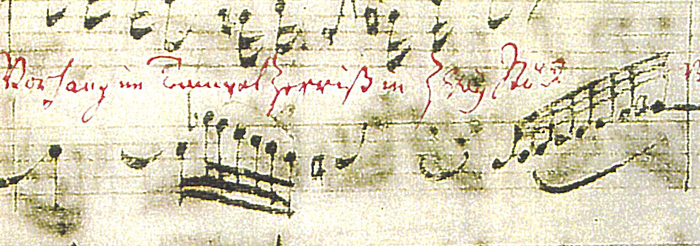 Vorhang im Tempel zerriß in zwey Stück